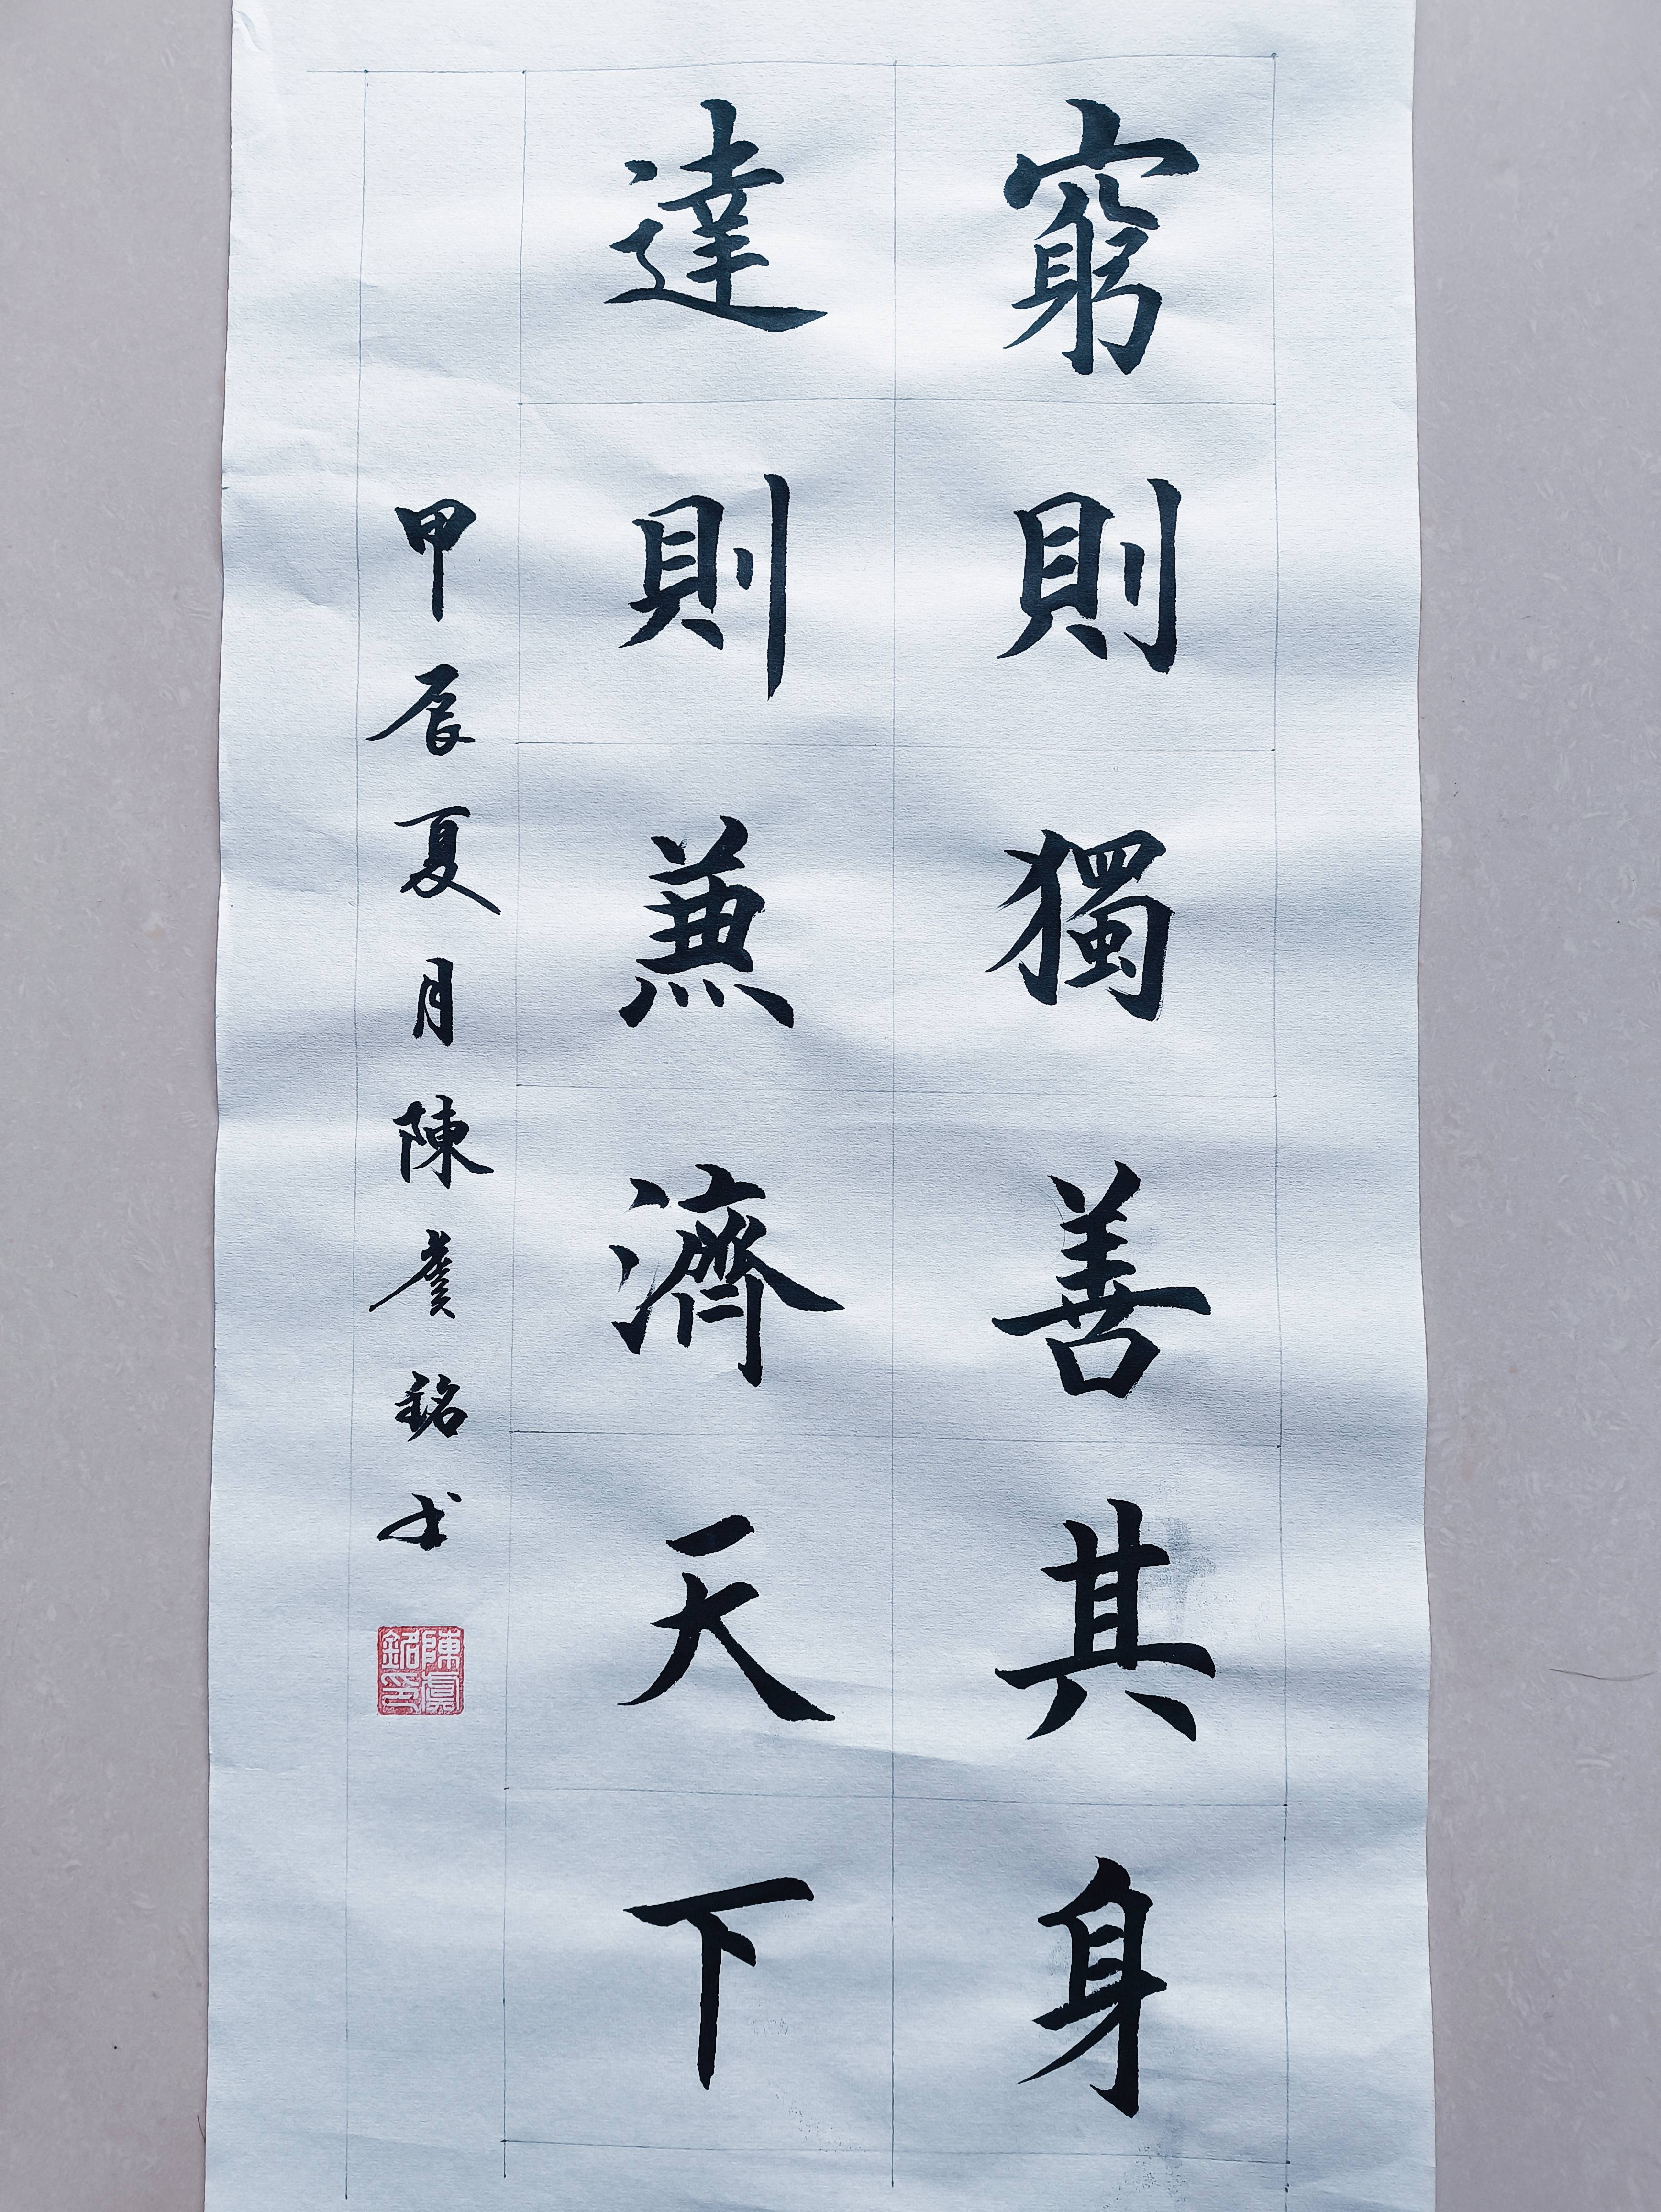 窮則獨善其身
達則兼濟天下
甲辰夏月陳虞銘書
陳虞銘印